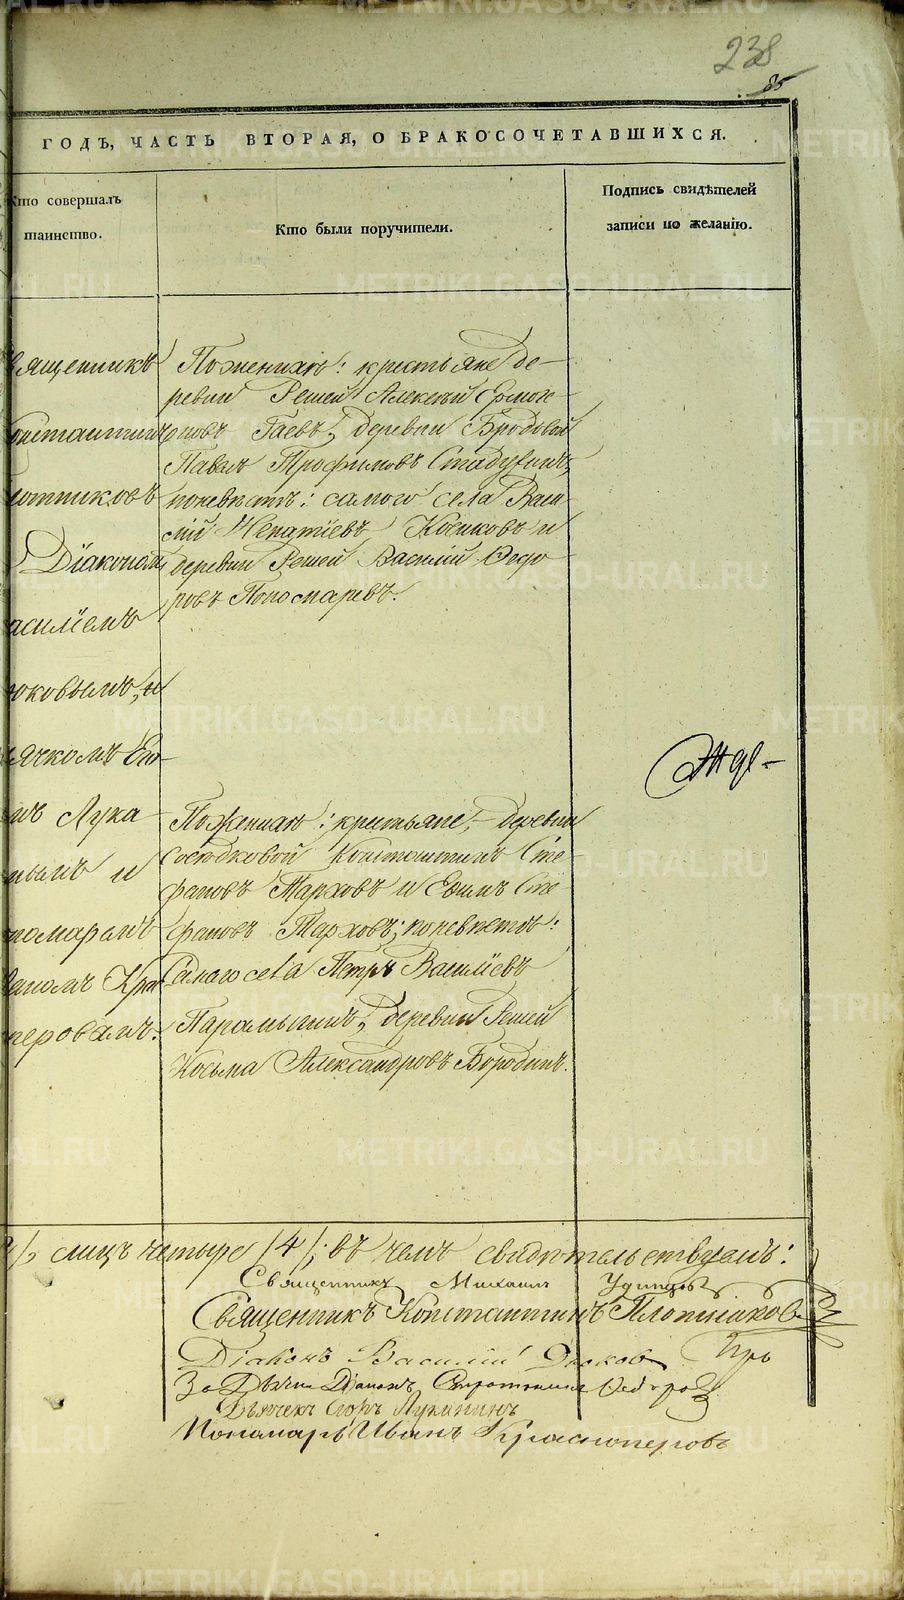 238
85
ГОДЪ, ЧАСТЬ ВТОРАЯ, О БРАКОСОЧЕТАВШИХСЯ.
Кто совершалъ таинство.
Кто были поручители.
Подпись свидѣтелей записи по желанію.
Священникъ
Константинъ
Плотниковъ
Діакономъ
Василіемъ
Дюковымъ, и
Дьячкомъ Его-
Лука
и
Пономаремъ
Иваномъ Крас
ноперовымъ.
По женихѣ: крестьяне де-
ревни Решей Алексѣй Ермол-
Гаевъ, деревни Бродовой
Павелъ Трофимовъ Стадухинъ,
по невѣстѣ: самого села Васи-
лій Игнатіевъ Косиковъ и
деревни Решей Василій Ѳедо
ровъ Пономаревъ.
По женихѣ: крестьяне, деревни
Соседковой Константинъ Сте
фановъ Тарховъ и Ефимъ Сте
фановъ Тарховъ; по невѣстѣ:
Самаго села Петръ Васильевъ
Парамыгинъ, деревни Решей
Косьма Александровъ Бородинъ.
лицъ четыре /4/; въ чемъ свидѣтельствуемъ:
Священникъ Михаилъ Удинцовъ
Священникъ Константинъ Плотниковъ
Діаконъ Василій Дюковъ
Діаконъ Ѳедоровъ
Дьячекъ Егоръ Лукининъ
Пономарь Иванъ Красноперовъ
METRIKI.GASO-URAL.RU